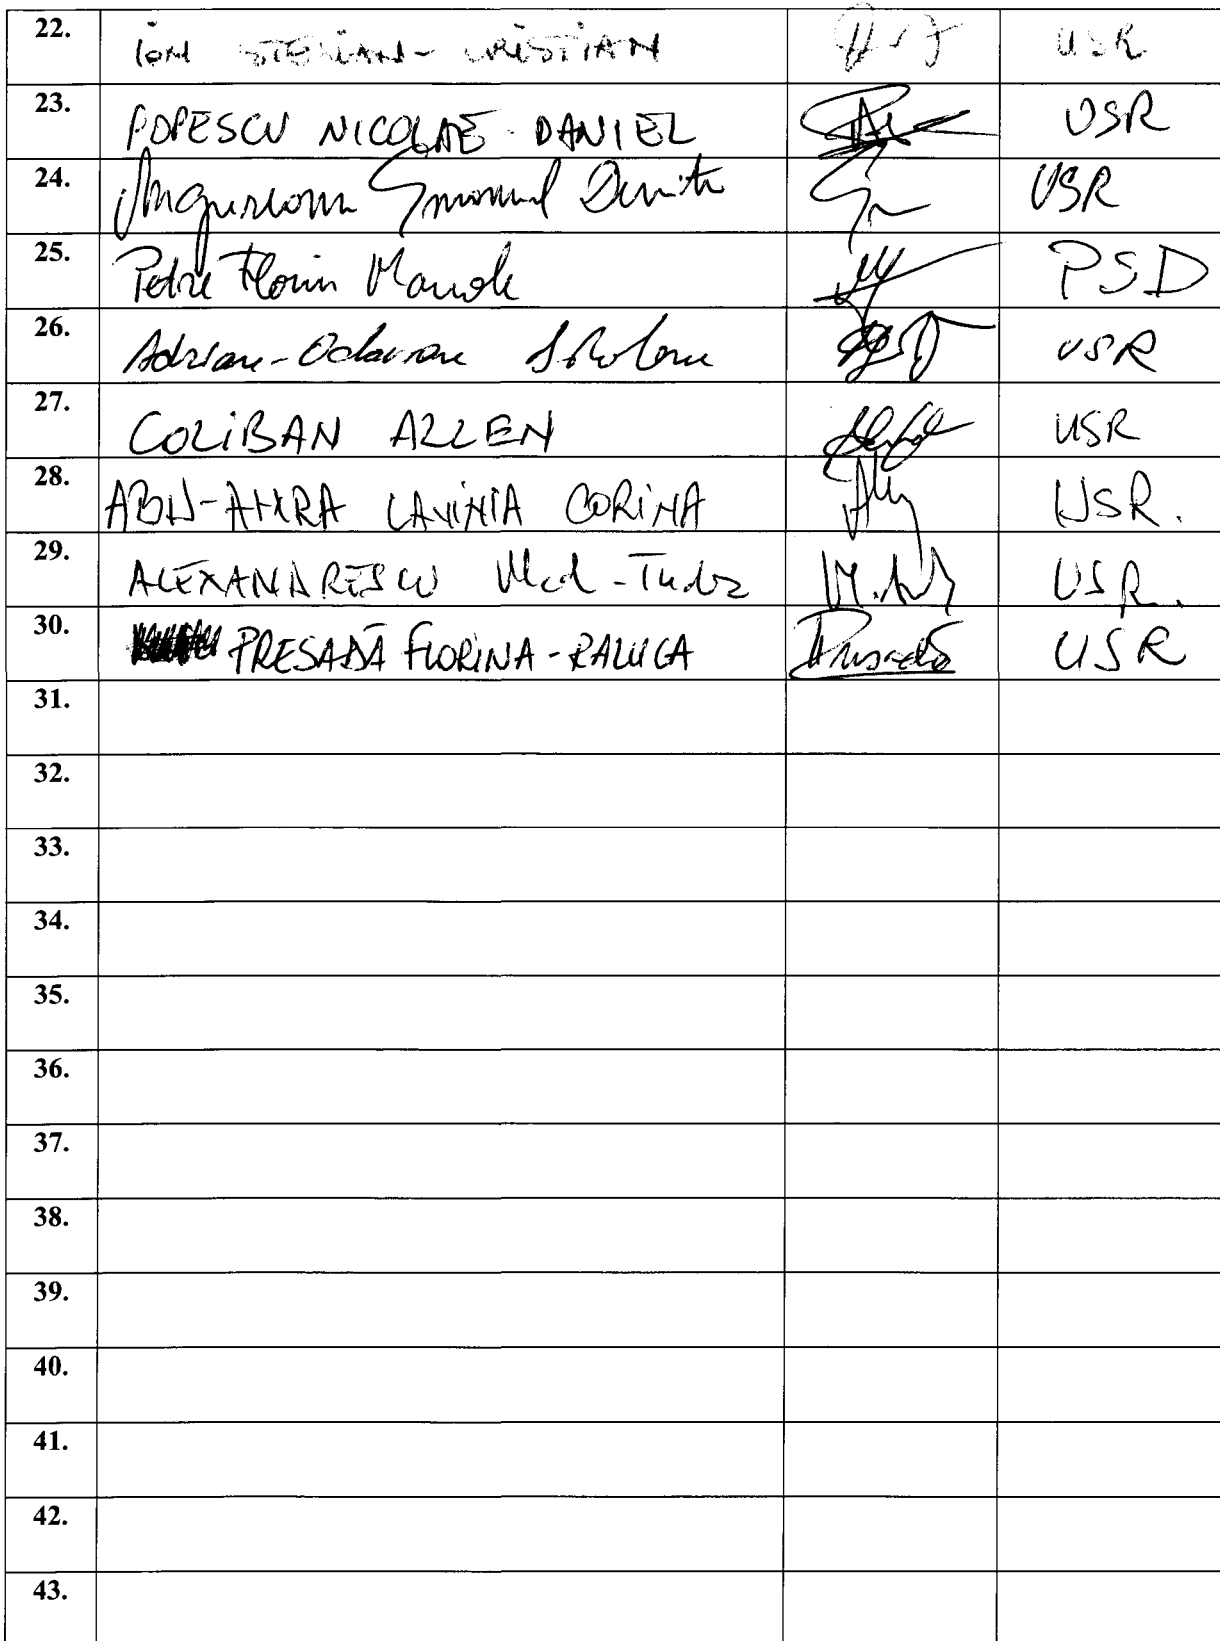 22. ION STELIAN-CRISTIAN USR
23. POPESCU NICOLAE-DANIEL USR
24. Ungureanu Emanuel Dumitru USR
25. Petre Florin Manole PSD
26. Adrian-Octavian USR
27. COLIBAN ALLEN USR
28. ABU-AMRA LAVINIA CORINA USR.
29. ALEXANDRESCU Vlad-Tudor USR.
30. PRESADĂ FLORINA-RALUCA USR
31.
32.
33.
34.
35.
36.
37.
38.
39.
40.
41.
42.
43.